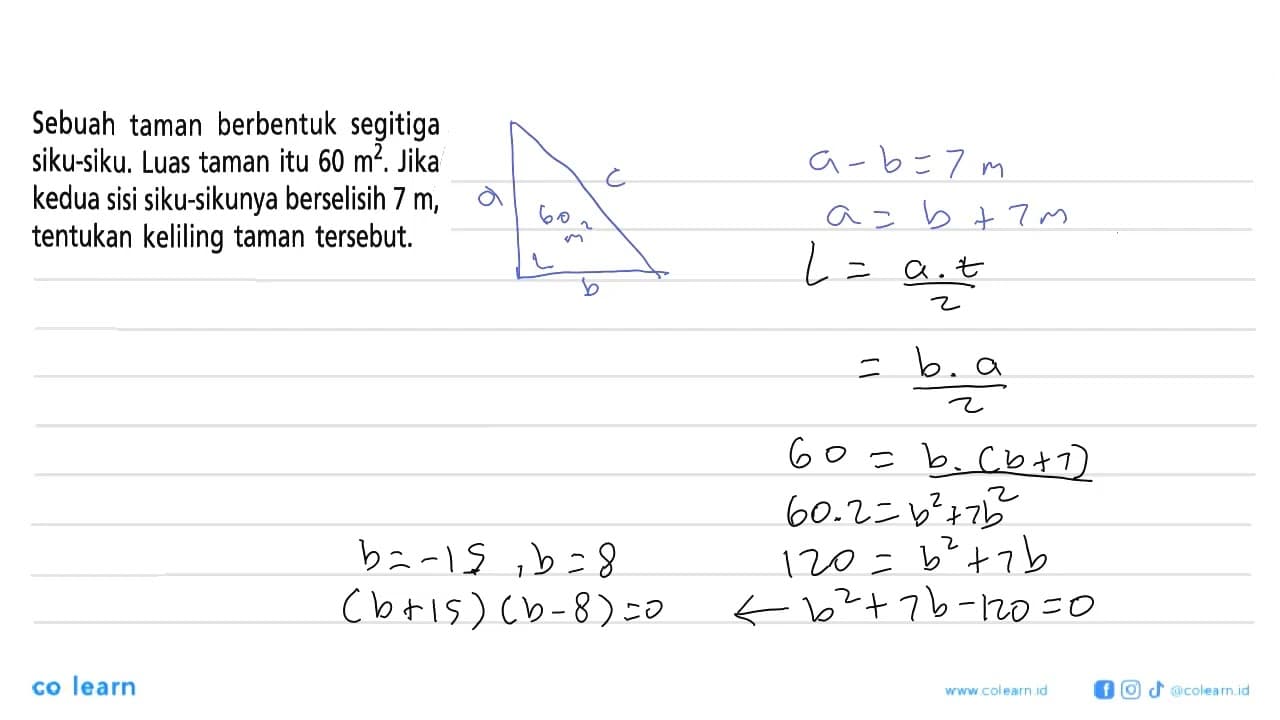 Sebuah taman berbentuk segitiga
siku-siku. Luas taman itu 60 m². Jika
kedua sisi siku-sikunya berselisih 7 m,
tentukan keliling taman tersebut.
a
60 m²
c
b
a - b = 7 m
a = b + 7 m
L = a . t
2
= b . a
2
60 = b . (b + 7)
2
60 . 2 = b² + 7b
120 = b² + 7b
← b² + 7b - 120 = 0
b = -15 , b = 8
(b + 15) (b - 8) = 0
co learn
www.colearn.id
@colearn.id